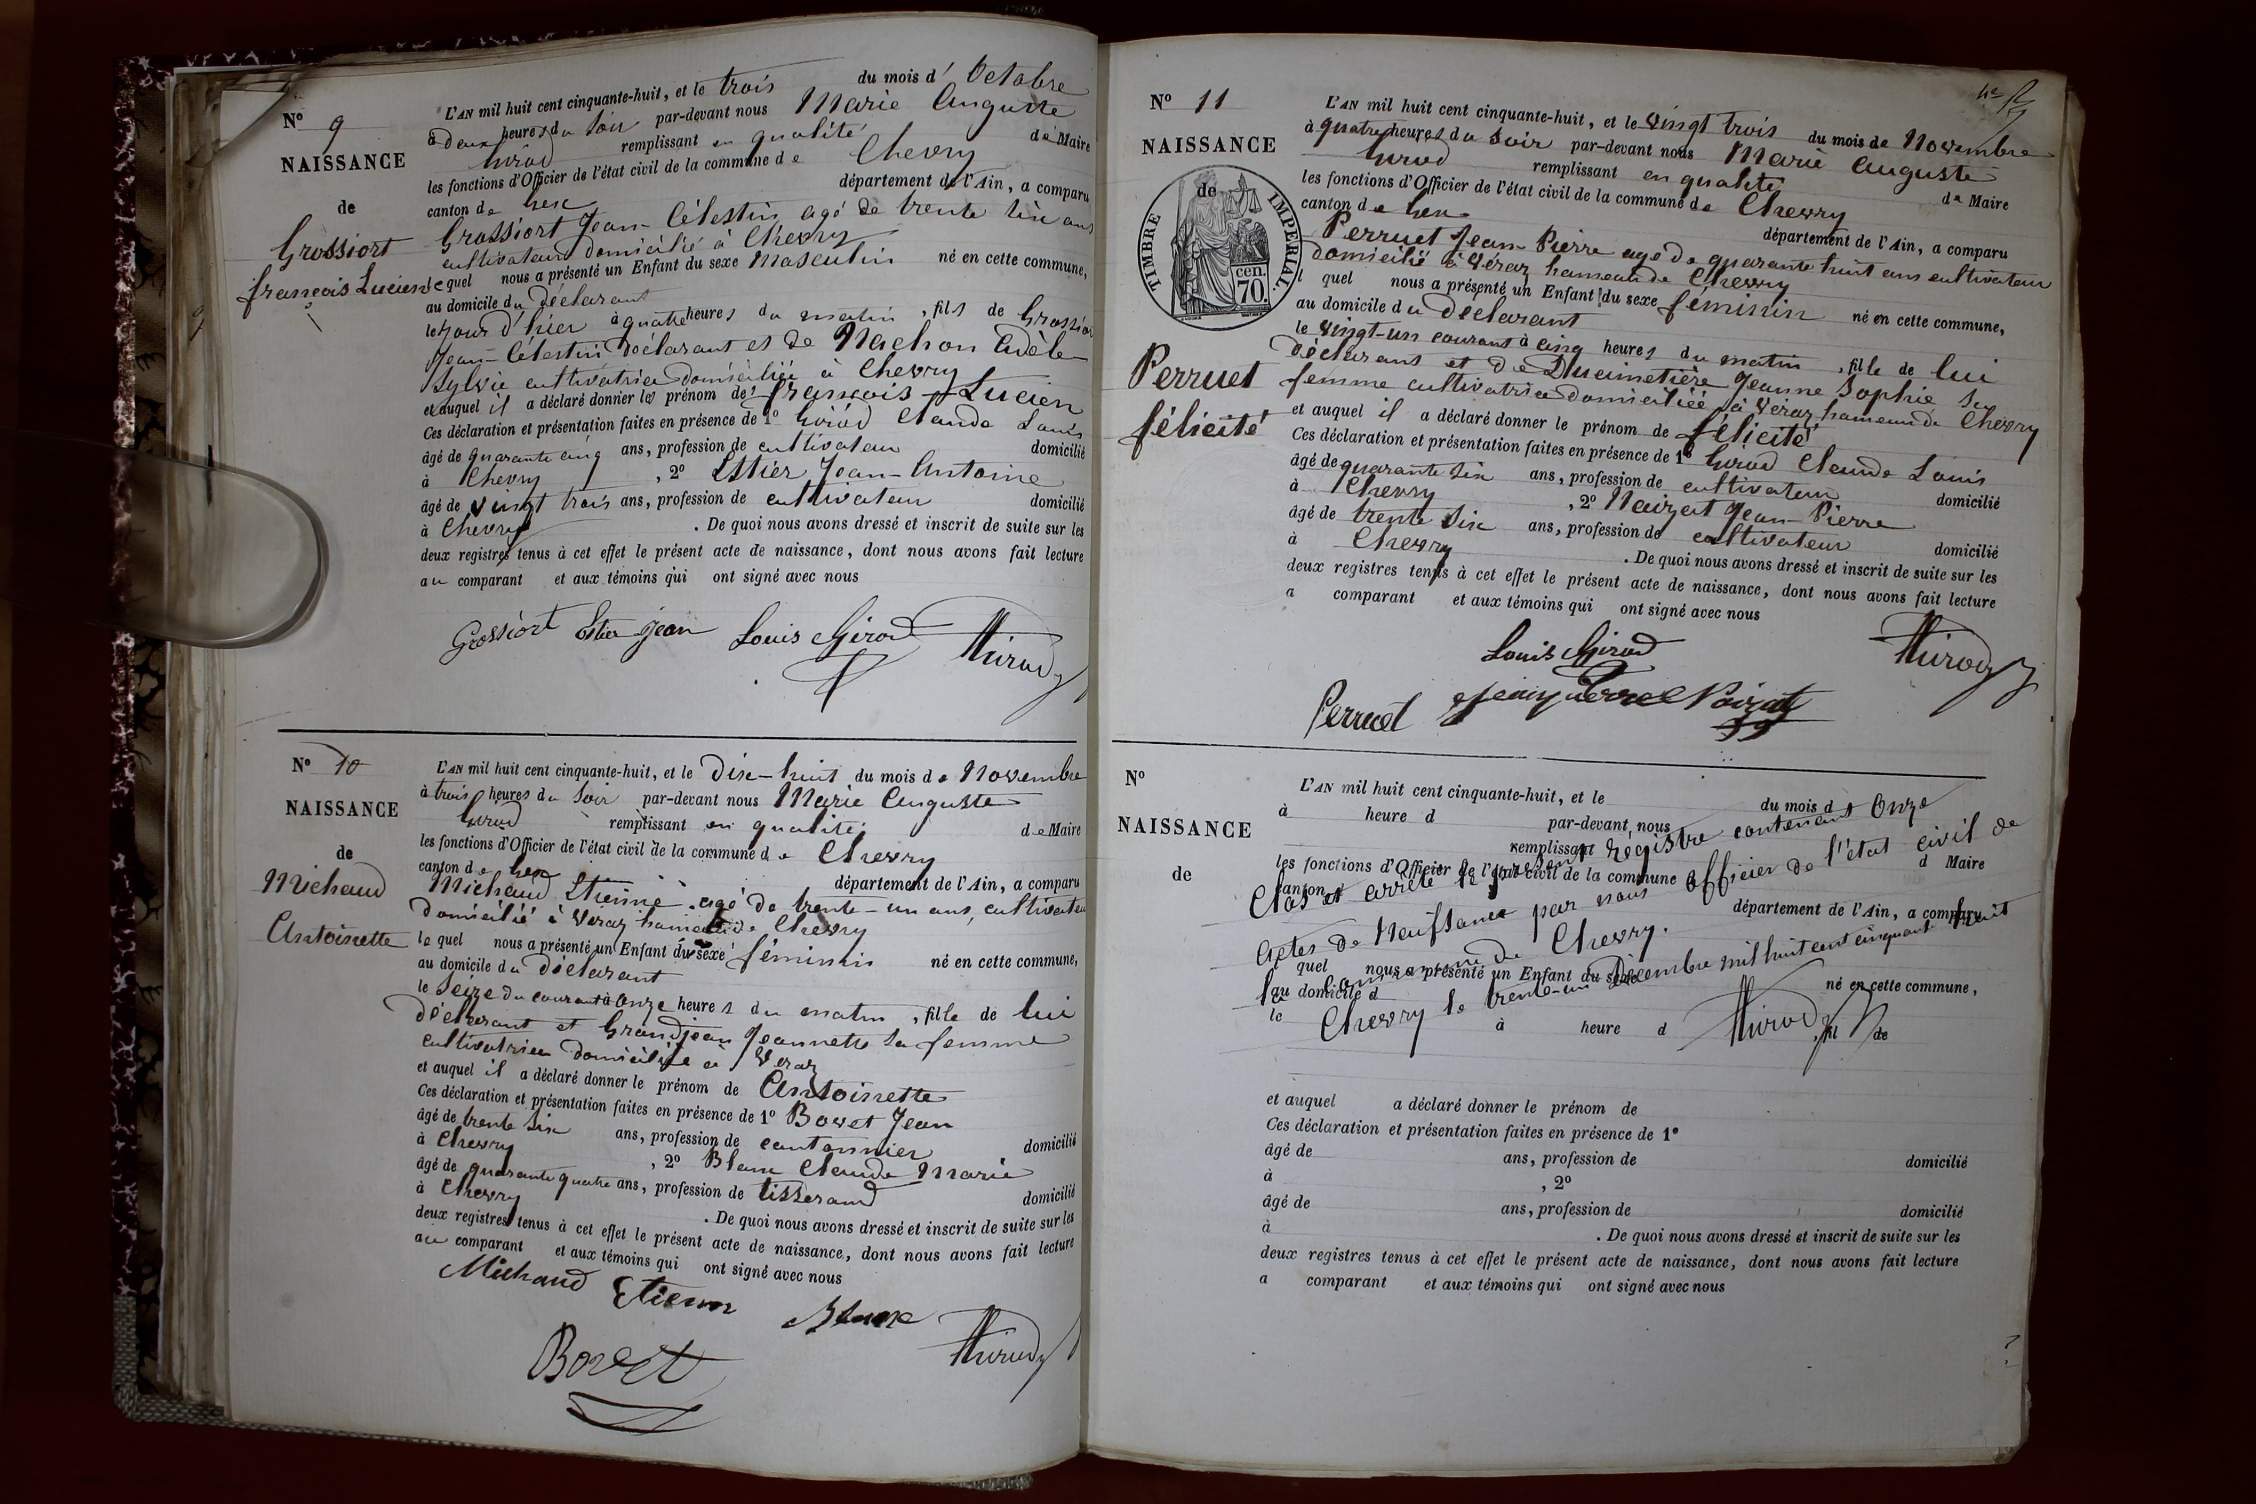 N° 9
NAISSANCE
de
Grossiort
françois Lucien
L'AN mil huit cent cinquante-huit, et le trois du mois d' Octobre
à deux heures du Soir par-devant nous Marie Auguste
Girod remplissant en qualité de Maire
les fonctions d'Officier de l'état civil de la commune de Chevry
canton de Gex département de l'Ain, a comparu
Grossiort Jean Célestin agé de trente six ans
cultivateur domicilié à Chevry
le quel nous a présenté un Enfant du sexe Masculin né en cette commune,
au domicile du déclarant
le jour d'hier à quatre heures du matin, fils de Grossior
Jean-Célestin Déclarant et de Nachon Adèle
Sylvie cultivatrice domiciliée à Chevry
et auquel il a déclaré donner les prénom de françois Lucien
Ces déclaration et présentation faites en présence de 1° Girod Claude Louis
âgé de quarante cinq ans, profession de cultivateur domicilié
à Chevry, 2° Estier Jean-Antoine
âgé de vingt trois ans, profession de cultivateur domicilié
à Chevry. De quoi nous avons dressé et inscrit de suite sur les
deux registres tenus à cet effet le présent acte de naissance, dont nous avons fait lecture
au comparant et aux témoins qui ont signé avec nous
Grossiort Estier Jean Louis Girod Girod
N° 10
NAISSANCE
de
Michaud
Antoinette
L'AN mil huit cent cinquante-huit, et le Dix-huit du mois de Novembre
à trois heures du Soir par-devant nous Marie Auguste
Girod remplissant en qualité de Maire
les fonctions d'Officier de l'état civil de la commune de Chevry
canton de Gex département de l'Ain, a comparu
Michaud Etienne agé de trente-un ans, cultivateu
domicilié à Veraz hameau de Chevry
le quel nous a présenté un Enfant du sexe féminin né en cette commune,
au domicile du déclarant
le Seize du courant à onze heures du matin, fille de lui
déclarant et Grandjean Jeannette sa femme
cultivatrice domiciliée à Veraz
et auquel il a déclaré donner le prénom de Antoinette
Ces déclaration et présentation faites en présence de 1° Bovet Jean
âgé de trente six ans, profession de cantonnier domicilié
à Chevry, 2° Blanc Claude Marie
âgé de quarante quatre ans, profession de tisserand domicilié
à Chevry. De quoi nous avons dressé et inscrit de suite sur les
deux registres tenus à cet effet le présent acte de naissance, dont nous avons fait lecture
au comparant et aux témoins qui ont signé avec nous
Michaud Etienne Blanc
Bovet Girod
N° 11
NAISSANCE
de
TIMBRE IMPERIAL.
70. cen.
Perruet
félicité
L'AN mil huit cent cinquante-huit, et le vingt trois du mois de Novembre
à quatre heures du Soir par-devant nous Marie Auguste
Girod remplissant en qualité de Maire
les fonctions d'Officier de l'état civil de la commune de Chevry
canton de Gex département de l'Ain, a comparu
Perruet Jean-Pierre agé de quarante huit ans cultivateur
domicilié à Véraz hameau de Chevry
l quel nous a présenté un Enfant du sexe féminin né en cette commune,
au domicile du déclarant
le vingt-un courant à cinq heures du matin, fille de lui
déclarant et de Ducimetière Jeanne Sophie sa
femme cultivatrice domiciliée à Véraz hameau de Chevry
et auquel il a déclaré donner le prénom de félicité
Ces déclaration et présentation faites en présence de 1° Girod Claude Louis
âgé de quarante six ans, profession de cultivateur domicilié
à Chevry, 2° Naizat Jean-Pierre
âgé de trente six ans, profession de cultivateur domicilié
à Chevry. De quoi nous avons dressé et inscrit de suite sur les
deux registres tenus à cet effet le présent acte de naissance, dont nous avons fait lecture
a comparant et aux témoins qui ont signé avec nous
Louis Girod Girod
Perruet Jean pierre
N°
NAISSANCE
de
L'AN mil huit cent cinquante-huit, et le du mois d
à heure d par-devant nous
remplissant
les fonctions d'Officier de l'état civil de la commune d Maire
canton d département de l'Ain, a comparu
quel nous a présenté un Enfant du sexe né en cette commune,
au domicile d
le à heure d , fil de
Clos et arrêté le présent régistre contenant Onze
actes de Naissance par nous officier de l'état civil de
la Commune de Chevry.
Chevry le trente-un Décembre mil huit cent cinquante huit
Girod
et auquel a déclaré donner le prénom de
Ces déclaration et présentation faites en présence de 1°
âgé de ans, profession de domicilié
à , 2°
âgé de ans, profession de domicilié
à . De quoi nous avons dressé et inscrit de suite sur les
deux registres tenus à cet effet le présent acte de naissance, dont nous avons fait lecture
a comparant et aux témoins qui ont signé avec nous